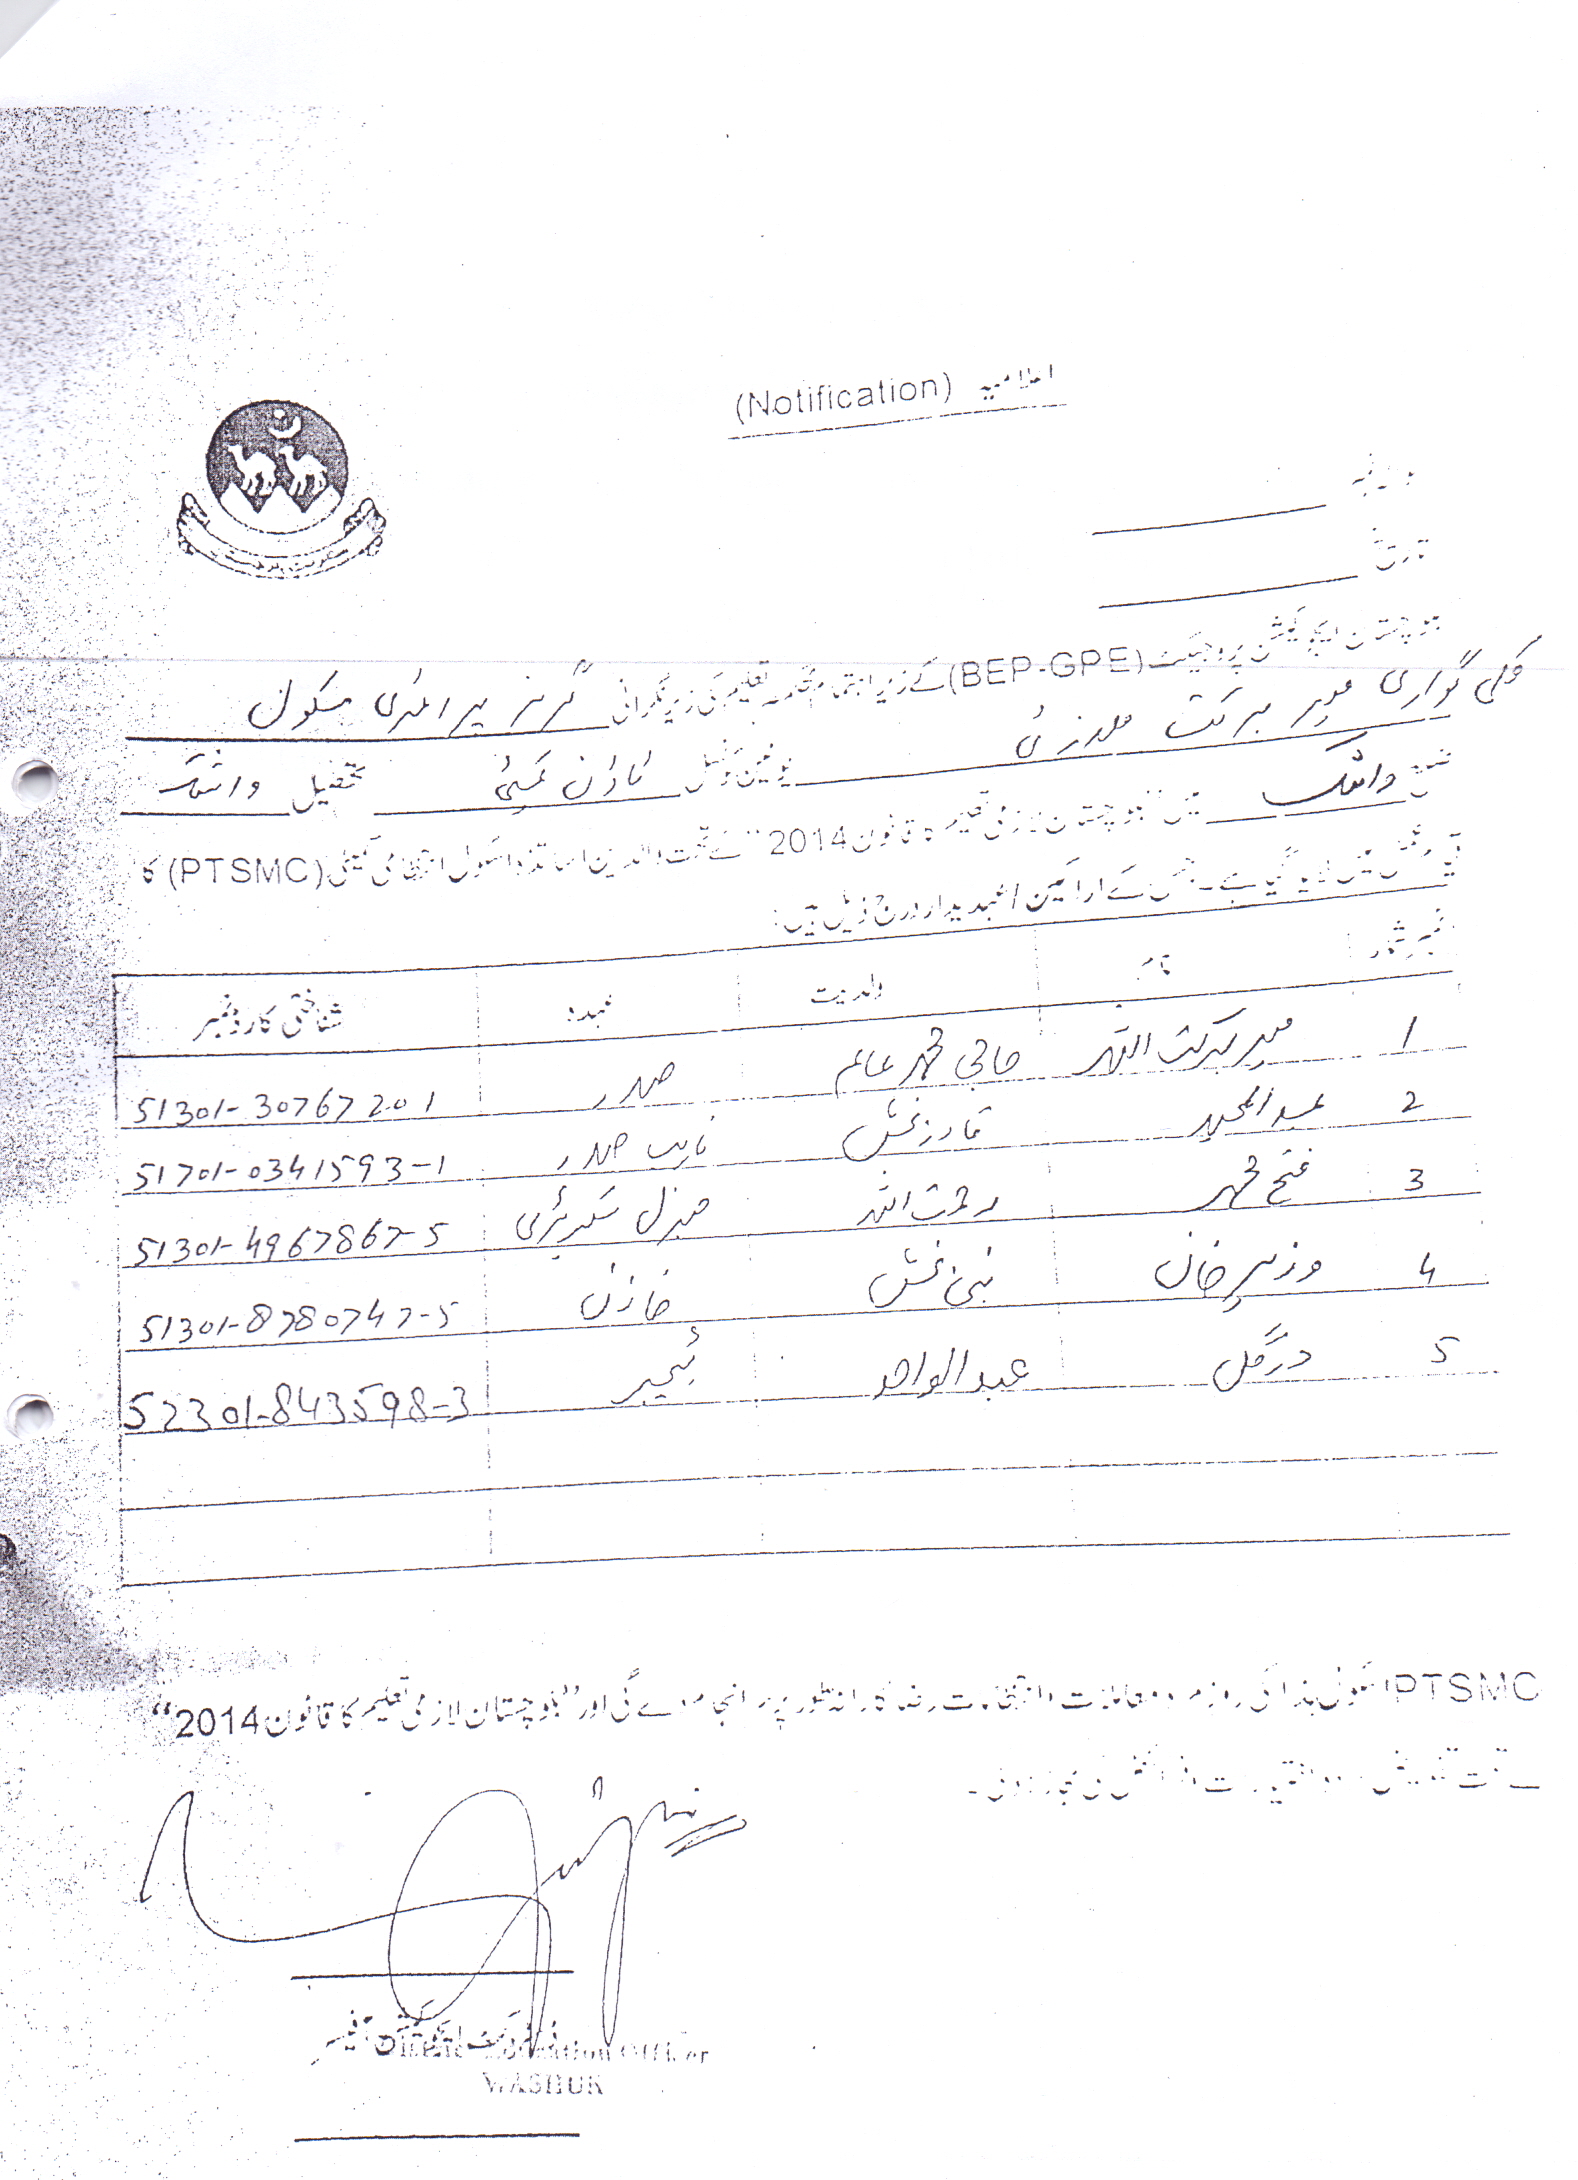 اعلامیہ (Notification)
تاریخ
بلوچستان ایجوکیشن پروجیکٹ (BEP-GPE) کے زیر اہتمام محکمہ تعلیم کی زیر نگرانی گرلز پرائمری سکول
کلی گواری میر برکت یونین کونسل ٹاؤن کمیٹی تحصیل واشک
ضلع واشک میں "بلوچستان لازمی تعلیم کا قانون 2014" کے تحت والدین اساتذہ اسکول انتظامی کمیٹی (PTSMC) کا
قیام عمل میں لایا گیا ہے۔ جس کے اراکین / عہدیدار درج ذیل ہیں:
نمبر شمار نام ولدیت عہدہ شناختی کارڈ نمبر
1 میر برکت اللہ حاجی محمد عالم صدر 51301-30767201
2 عبدالمجید قادر بخش نایب صدر 51701-0341593-1
3 فتح محمد رحمت اللہ جنرل سکریٹری 51301-4967867-5
4 وزیر خان نبی بخش خازن 51301-8780747-5
5 در گل عبدالواحد ٹیچر 52301-843598-3
PTSMC سکول ہذا کی روزمرہ معاملات و انتظامات رضاکارانہ طور پر انجام دے گی اور "بلوچستان لازمی تعلیم کا قانون 2014"
کے تحت تفویض کردہ اختیارات و فرائض کی
ڈسٹرکٹ ایجوکیشن آفیسر
District Education Officer
WASHUK